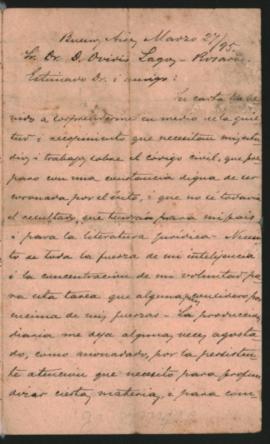 Buenos Aires, Marzo 27/95.
Sr. Dr. D. Ovidio Lagos - Rosario.
Estimado Dr. i amigo:
Su carta ha ve
nido a sorprenderme en medio de la quie
tud i recojimiento que necesitan mis estu
dios i trabajos sobre el código civil, que pre
paro con una constancia digna de ser
coronada por el éxito, i que no sé todavia
el resultado que tendrán para mi pais
i para la literatura juridica - Necesi
to se toda la fuerza de mi intelijencia
i la concentracion de mi voluntad pa
ra esta tarea que algunas considero por
encima de mis fuerzas - La produccion
diaria me deja algunas veces agota
do, como anonadado, por la persisten
te atencion que necesito para profun
dizar ciertas materias, i para com